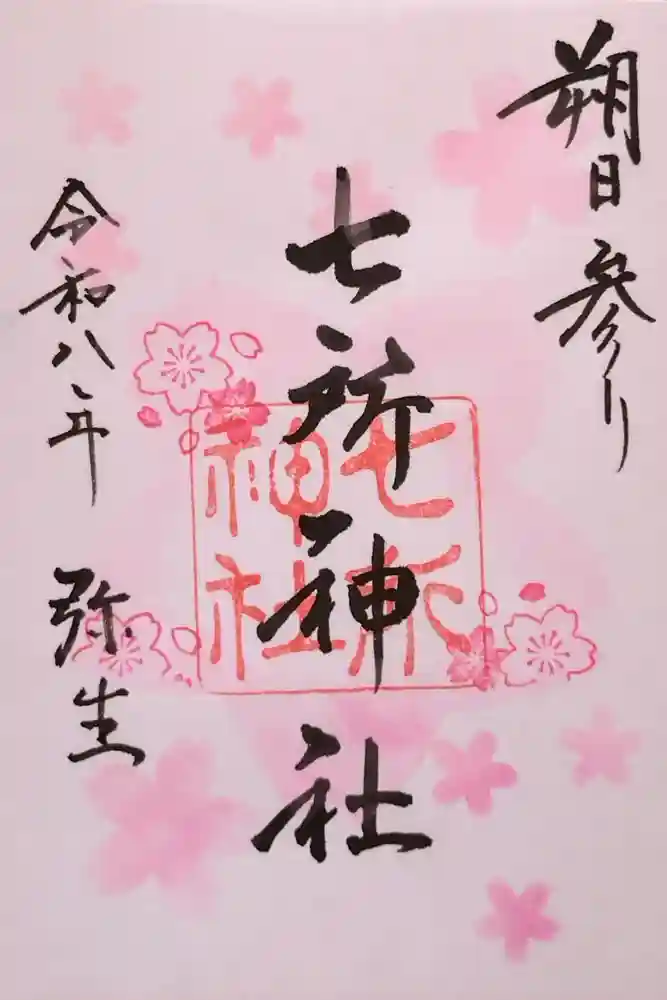 朔日参り
七所神社
七所
神社
令和八年
弥生